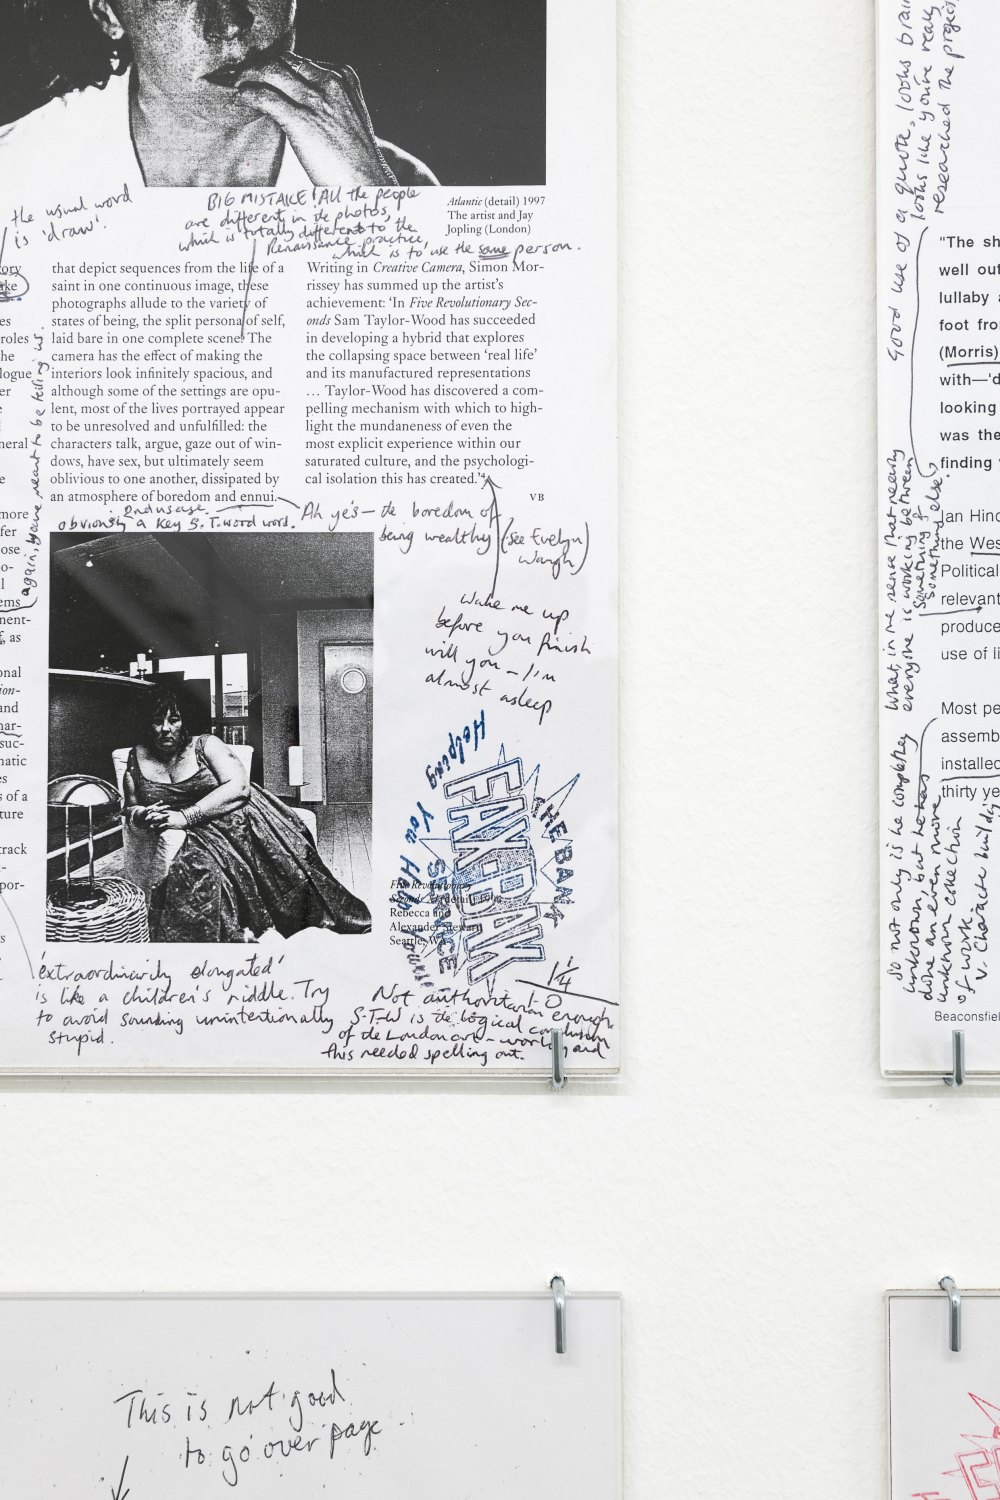 the usual word
is 'draw'.
BIG MISTAKE! All the people
are different in the photos,
which is totally different to the
Renaissance practice,
which is to use the same person.
Atlantic (detail) 1997
The artist and Jay
Jopling (London)
that depict sequences from the life of a
saint in one continuous image, these
photographs allude to the variety of
states of being, the split persona of self,
laid bare in one complete scene. The
camera has the effect of making the
interiors look infinitely spacious, and
although some of the settings are opu-
lent, most of the lives portrayed appear
to be unresolved and unfulfilled: the
characters talk, argue, gaze out of win-
dows, have sex, but ultimately seem
oblivious to one another, dissipated by
an atmosphere of boredom and ennui.
Writing in Creative Camera, Simon Mor-
rissey has summed up the artist's
achievement: 'In Five Revolutionary Sec-
onds Sam Taylor-Wood has succeeded
in developing a hybrid that explores
the collapsing space between 'real life'
and its manufactured representations
… Taylor-Wood has discovered a com-
pelling mechanism with which to high-
light the mundaneness of even the
most explicit experience within our
saturated culture, and the psychologi-
cal isolation this has created.'4
VB
2nd usage.
obviously a key S.T. word word.
Ah yes – the boredom of
being wealthy (see Evelyn
Waugh)
Wake me up
before you finish
will you – I'm
almost asleep
again, meant to be telling us
Helping You
THE BANK
FAX-BAK
SERVICE
Five Revolutionary
Seconds
Rebecca and
Alexander Stewart
Seattle, WA
'extraordinarily elongated'
is like a children's riddle. Try
to avoid sounding unintentionally
stupid.
Not authoritarian enough
S-T-W is the logical conclusion
of the London art-world, and
this needed spelling out.
Good use of a quote, looks
looks like you've really
researched the project
"The
well out
lullaby
foot
(Morris)
with—
looking
was the
finding
What, in the sense that nearly
everyone is working between
something &
something else?
Ian
the
Political
relevant
produce
use of
Most
assemb
installed
thirty
So not only is he completely
unknown, but he has
done an even more
unknown collection
of work
V. Character building
This is not good
to go over page